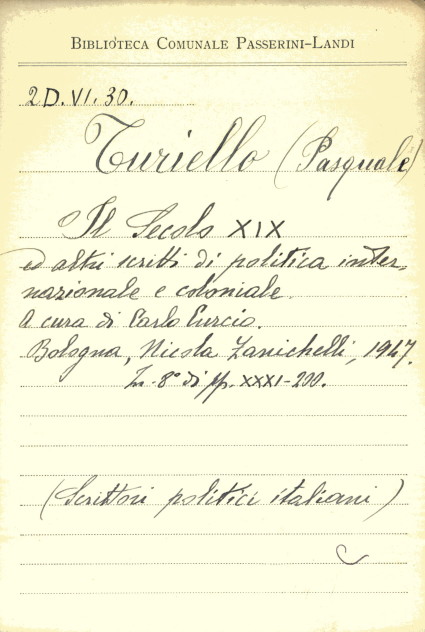 BIBLIOTECA COMUNALE PASSERINI-LANDI
2D.VI.30.
Turiello (Pasquale)
Il Secolo XIX
ed altri scritti di politica inter-
nazionale e coloniale.
A cura di Carlo Curcio.
Bologna, Nicola Zanichelli, 1947.
In-8° di pp. XXXI-200.
(Scrittori politici italiani)